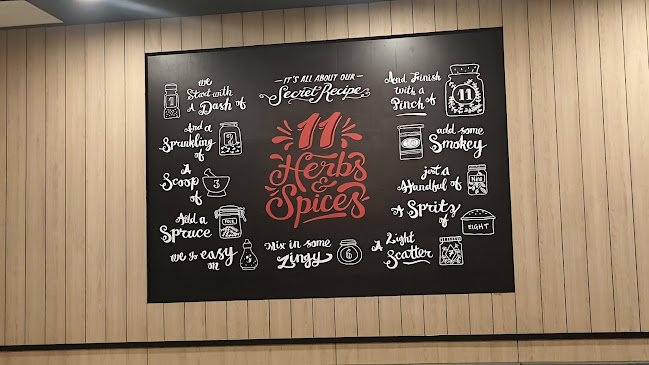 IT'S ALL ABOUT OUR
Secret Recipe
11
Herbs
&
Spices
we
Start with
A Dash of
1
And a
Sprinkling
of
A
Scoop
of
3
Add a
Spruce
FOUR
we go easy
on
5
Mix in some
Zingy
6
A Light
Scatter
7
of
A Spritz
of
EIGHT
just a
Handful
of
NINE
add some
Smokey
And Finish
with a
Pinch of
11